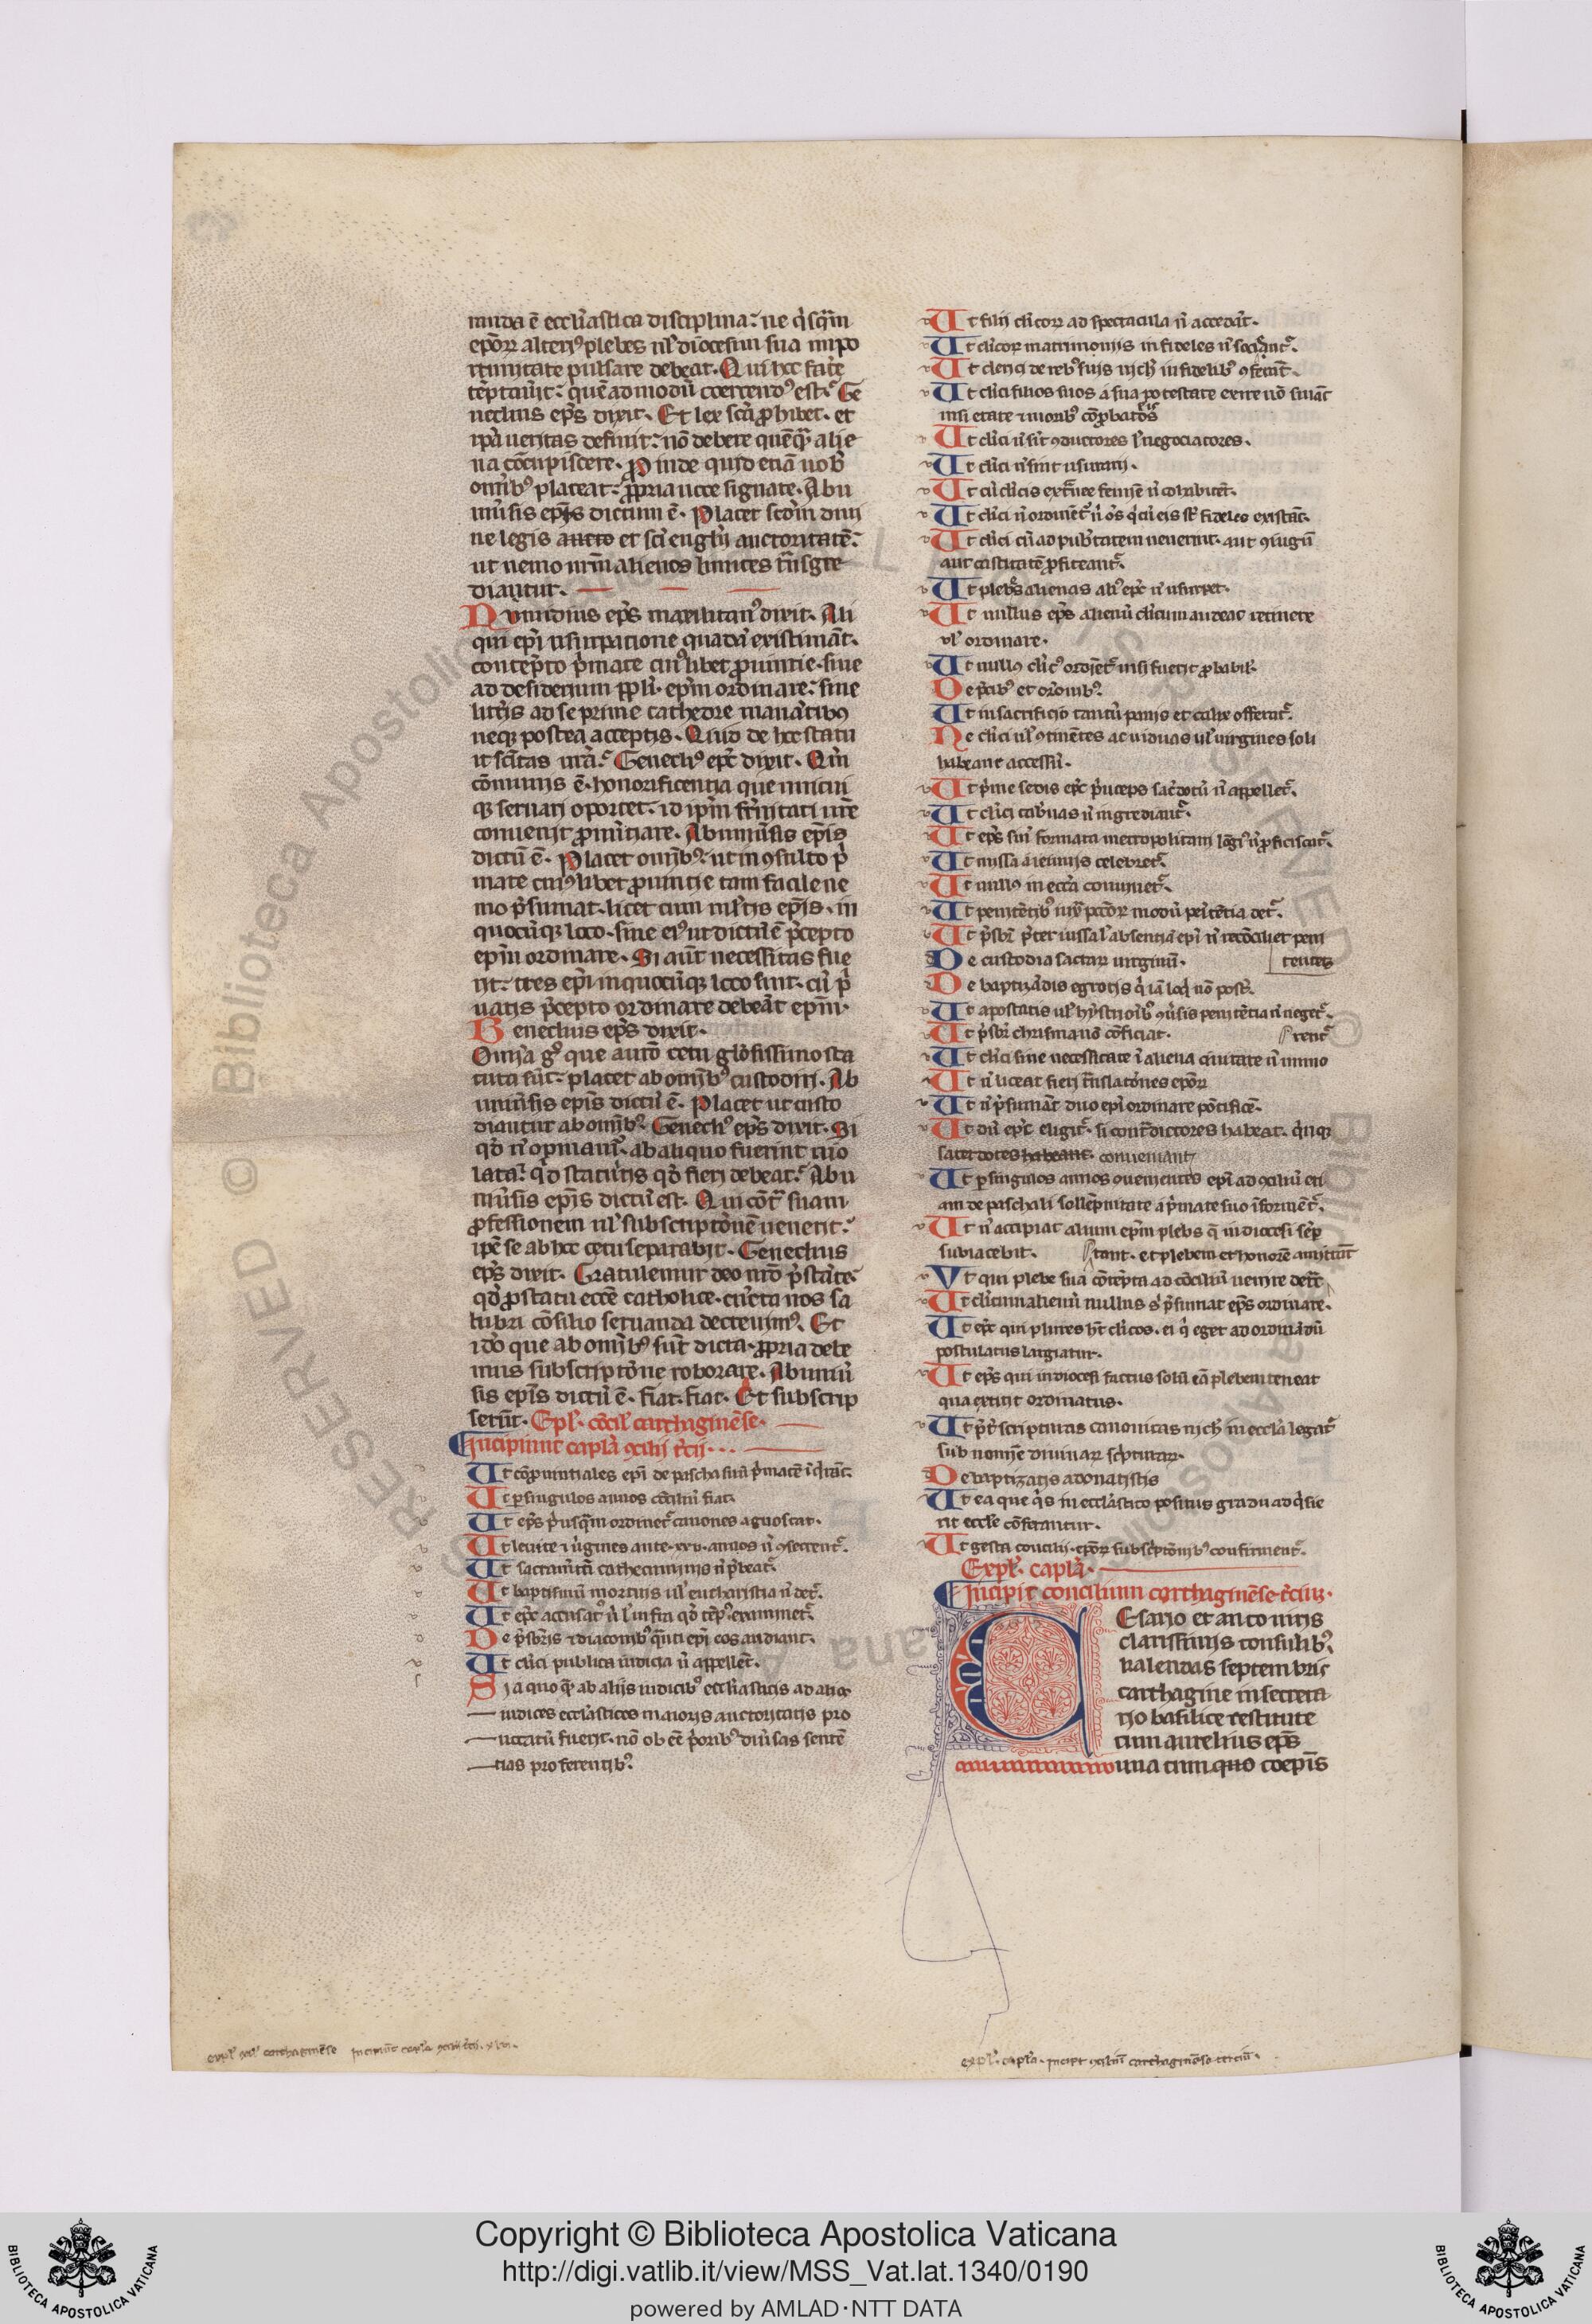 muda ē ecclīastica disciplina: ne q̇sq̄m
ep̄oꝝ alteriꝰ plebes ul̓ diōcesim sua impo
rtunitate pulsare debeat. Qui hoc fac̄e
tēptauīt: quē ad modū coercendꝰ est. Ge
neclius ep̄s dixit. Et lex scā ꝓhibet. et
ip̄a ueritas definit: nō debere quēq̄ alie
na cōcupiscere. Proinde quid etiā uob̄
om̄ibꝰ placeat: ꝓpria uoce signate. Ab u
niūsis ep̄īs dictum ē. Placet scd̄m diui
ne legis aucto et sci euglīj auctoritatē:
ut nemo nr̄m alienos limites tn̄sgre
diatur.
Numidius ep̄s maxilitanꝰ dixit. Ali
qui ep̄i usurpatione quadā existimāt.
contēpto p̄mate cuiꝰlibet ꝓuintie. siue
ad desiderium ppl̄i. ep̄m ordinare: sine
litt̄is ad se prime cathedre manātibꝰ
neqꝫ postea acceptis. Quid de hoc statu
it sc̄itas ur̄a. Geneclꝰ ep̄c dixit. Qm̄
cōmunis ē. honorificentia que unicui
qꝫ seruari oportet. id ip̄m fr̄nitati ur̄e
conuenit ꝓnūtiare. Ab uniūsis ep̄is
dictū ē. Placet om̄ibꝰ: ut inꝯsulto p̄
mate cuiꝰlibet ꝓuintie tam facile ne
mo p̄sumat. licet cum mul̄tis ep̄is. in
quocūqꝫ loco. sine eiꝰ ut dictū ē p̄cepto
ep̄m ordinare. Si aūt necessitas fue
rit: tres ep̄i in quocūqꝫ loco sint. cū p̄
matis p̄cepto ordinare debeāt ep̄m.
Geneclius ep̄s dixit.
Omīa gͦ que a uirō cetu gl̓osissimo sta
tuta sūt: placet ab om̄ibꝰ custodiri. Ab
uniūsis ep̄is dictū ē. Placet ut custo
diantur ab om̄ibꝰ. Geneclꝰ ep̄s dixit. Si
qd̓ n̄ opinam̄. ab aliquo fuerint uio
lata: qd̓ statuitis qd̓ fieri debeat. Ab u
niūsis ep̄is dictū est. Qui cōt̄ suam
ꝓfessionem ul̓ subscriptōnē uenerit:
ip̄e se ab hoc cetu separabit. Geneclius
ep̄s dixit. Gratulemur deo nr̄o p̄stāte.
qd̓ ꝓ statu ecc̄e catholice. cūcta nos sa
lubri cōsilio seruanda decreuimꝰ. Et
idō que ab om̄ibꝰ sūt dicta. ꝓpria debe
mus subscriptōne roborare. Ab uniū
sis ep̄is dictū ē. fiat. fiat. Et subscrip
serūt. Expl̓. cōcil̓ carthaginēse.
Incipiunt capl̄a ꝯcilij t̄cij.
Ut cōꝓuintiales ep̄i de pascha suū p̄matē īq̇rāt.
Ut ꝑ singulos annos cōciliū fiat.
Ut ep̄s p̄usq̄m ordinet̄ canones agnoscat.
Ut leuite ⁊ ūgines ante. xxv. annos n̄ ꝯsecrent̄.
Ut sacramtū cathecuminis n̄ p̄beat̄.
Ut baptismū mortuis ul̓ eucharistia n̄ det̄.
De p̄sbr̄is ⁊ diaconibꝰ q̄nti ep̄i eos audiant.
Ut cl̓ici publica iudicia n̄ appellēt.
Si a quoq̄ ab alijs iudicibꝰ eccl̄iasticis ad alios
iudices eccl̄asticos maioris auctoritatis pro
uocatū fuerit. nō ob eē p̄oribꝰ diūsas sentē
tias proferentibꝰ.
Ut filij cl̓icoꝝ ad spectacula n̄ accedāt.
Ut cl̓icoꝝ matrimonijs infideles n̄ sociant̄.
Ut clerici de rebꝰ suis nich̓ infidelibꝰ ꝯferāt.
Ut cl̓ici filios suos a sua potestate exire nō sināt
nisi etate ⁊ moribꝰ cōprobatos
Ut cl̓ici n̄ sīt ꝯductores ul̓ negociatores.
Ut cl̓ici n̄ sint usurarij.
Ut cū cl̓icis extranee femīe n̄ cohabitēt.
Ut cl̓ici cū ad pub̄tatem uenerint. aut ꝯiugiū
aut castitatē ꝓfiteant̄.
Ut plebes alienas aliꝰ ep̄c n̄ usurpet.
Ut nullus ep̄s alienū cl̓icum audeat retinere
ul̓ ordinare.
Ut nullꝰ cl̓icꝰ ordīet̄ nisi fuerit ꝓbabil̓.
De p̄cibꝰ et orōnibꝰ.
Ut in sacrificio tantū panis et calix offerat̄.
Ne cl̓ici ul̓ ꝯtinētes ac uiduas ul̓ uirgines soli
habeant accessū.
Ut p̄me sedis ep̄c p̄nceps sacdotū n̄ appellet̄.
Ut cl̓ici tab̄nas n̄ ingrediant̄.
Ut ep̄s sine formata metropolitani lōgiꝰ n̄ ꝓficiscat̄.
Ut missa a ieiunijs celebret̄.
Ut nullꝰ in ecc̄a conuiuet̄.
Ut penitētibꝰ iux̄ pcc̄oꝝ modū penitētia det̄.
Ut p̄sbr̄ p̄ter iussa ul̓ absentia ep̄i n̄ recōciliet peni
De custodia sacraꝝ uirginū. tentes
De baptizādis egrotis q̇ iā loq̇ nō poss̄.
Ut apostatis ul̓ hystrioībꝰ ꝯūsis penitētia n̄ neget̄.
Ut p̄sbr̄ chrisma nō cōficiat. rent̄
Ut cl̓ici sine necessitate ī aliena ciuitate n̄ immo
Ut n̄ liceat fieri tn̄slatōnes ep̄oꝝ
Ut n̄ p̄sumāt duo ep̄i ordinare pōtificē.
Ut dū ep̄c eligit̄. si contradictores habeat. q̇nqꝫ
sacerdotes habeant. conueniant
Ut ꝑ singulos annos ꝯuenientes ep̄i ad ꝯciliū eti
am de paschali sollēpnitate a p̄mate suo īforment̄.
Ut n̄ accipiat alium ep̄m plebs q̄ in diocesi semp̄
subiacebit. tant. et plebem et honorē amittūt
Ut qui plebe sua cōtēpta ad cōciliū uenire detrec
Ut cl̓icum alienū nullus s̓ p̄sumat ep̄s ordinare.
Ut ep̄c qui plures h̄t cl̓icos. ei q̇ eget ad ordinādū
postulatus largiatur.
Ut ep̄s qui in diocesi factus solā eā plebem teneat
qua extitit ordinatus.
Ut p̄t̄ scripturas canonicas nich̓ in eccl̄a legat̄
sub nomīe diuinaꝝ sc̄pturaꝝ.
De baptizatis a donatistis
Ut ea que q̇s in eccl̄astico positus gradu adq̇sie
rit eccl̄e cōferantur.
Ut gesta concilij. ep̄oꝝ subsc̄ptōnibꝰ confirment̄.
Expl̓. capl̄a.
Incipit concilium carthaginēse t̄ciū.
Cesario et anto uiris
clarissimis consulibꝰ.
kalendas septembris
carthagine in secreta
rio basilice restitute
cum aurelius ep̄s
una cum quo coep̄is
expl̓ ꝯcil̓ carthaginēse incipiūt capl̄a ꝯcilij t̄cij.
expl̓. capl̄a. incipit ꝯciliū carthaginēse terciū.
Copyright © Biblioteca Apostolica Vaticana
http://digi.vatlib.it/view/MSS_Vat.lat.1340/0190
powered by AMLAD·NTT DATA
BIBLIOTECA APOSTOLICA VATICANA
BIBLIOTECA APOSTOLICA VATICANA